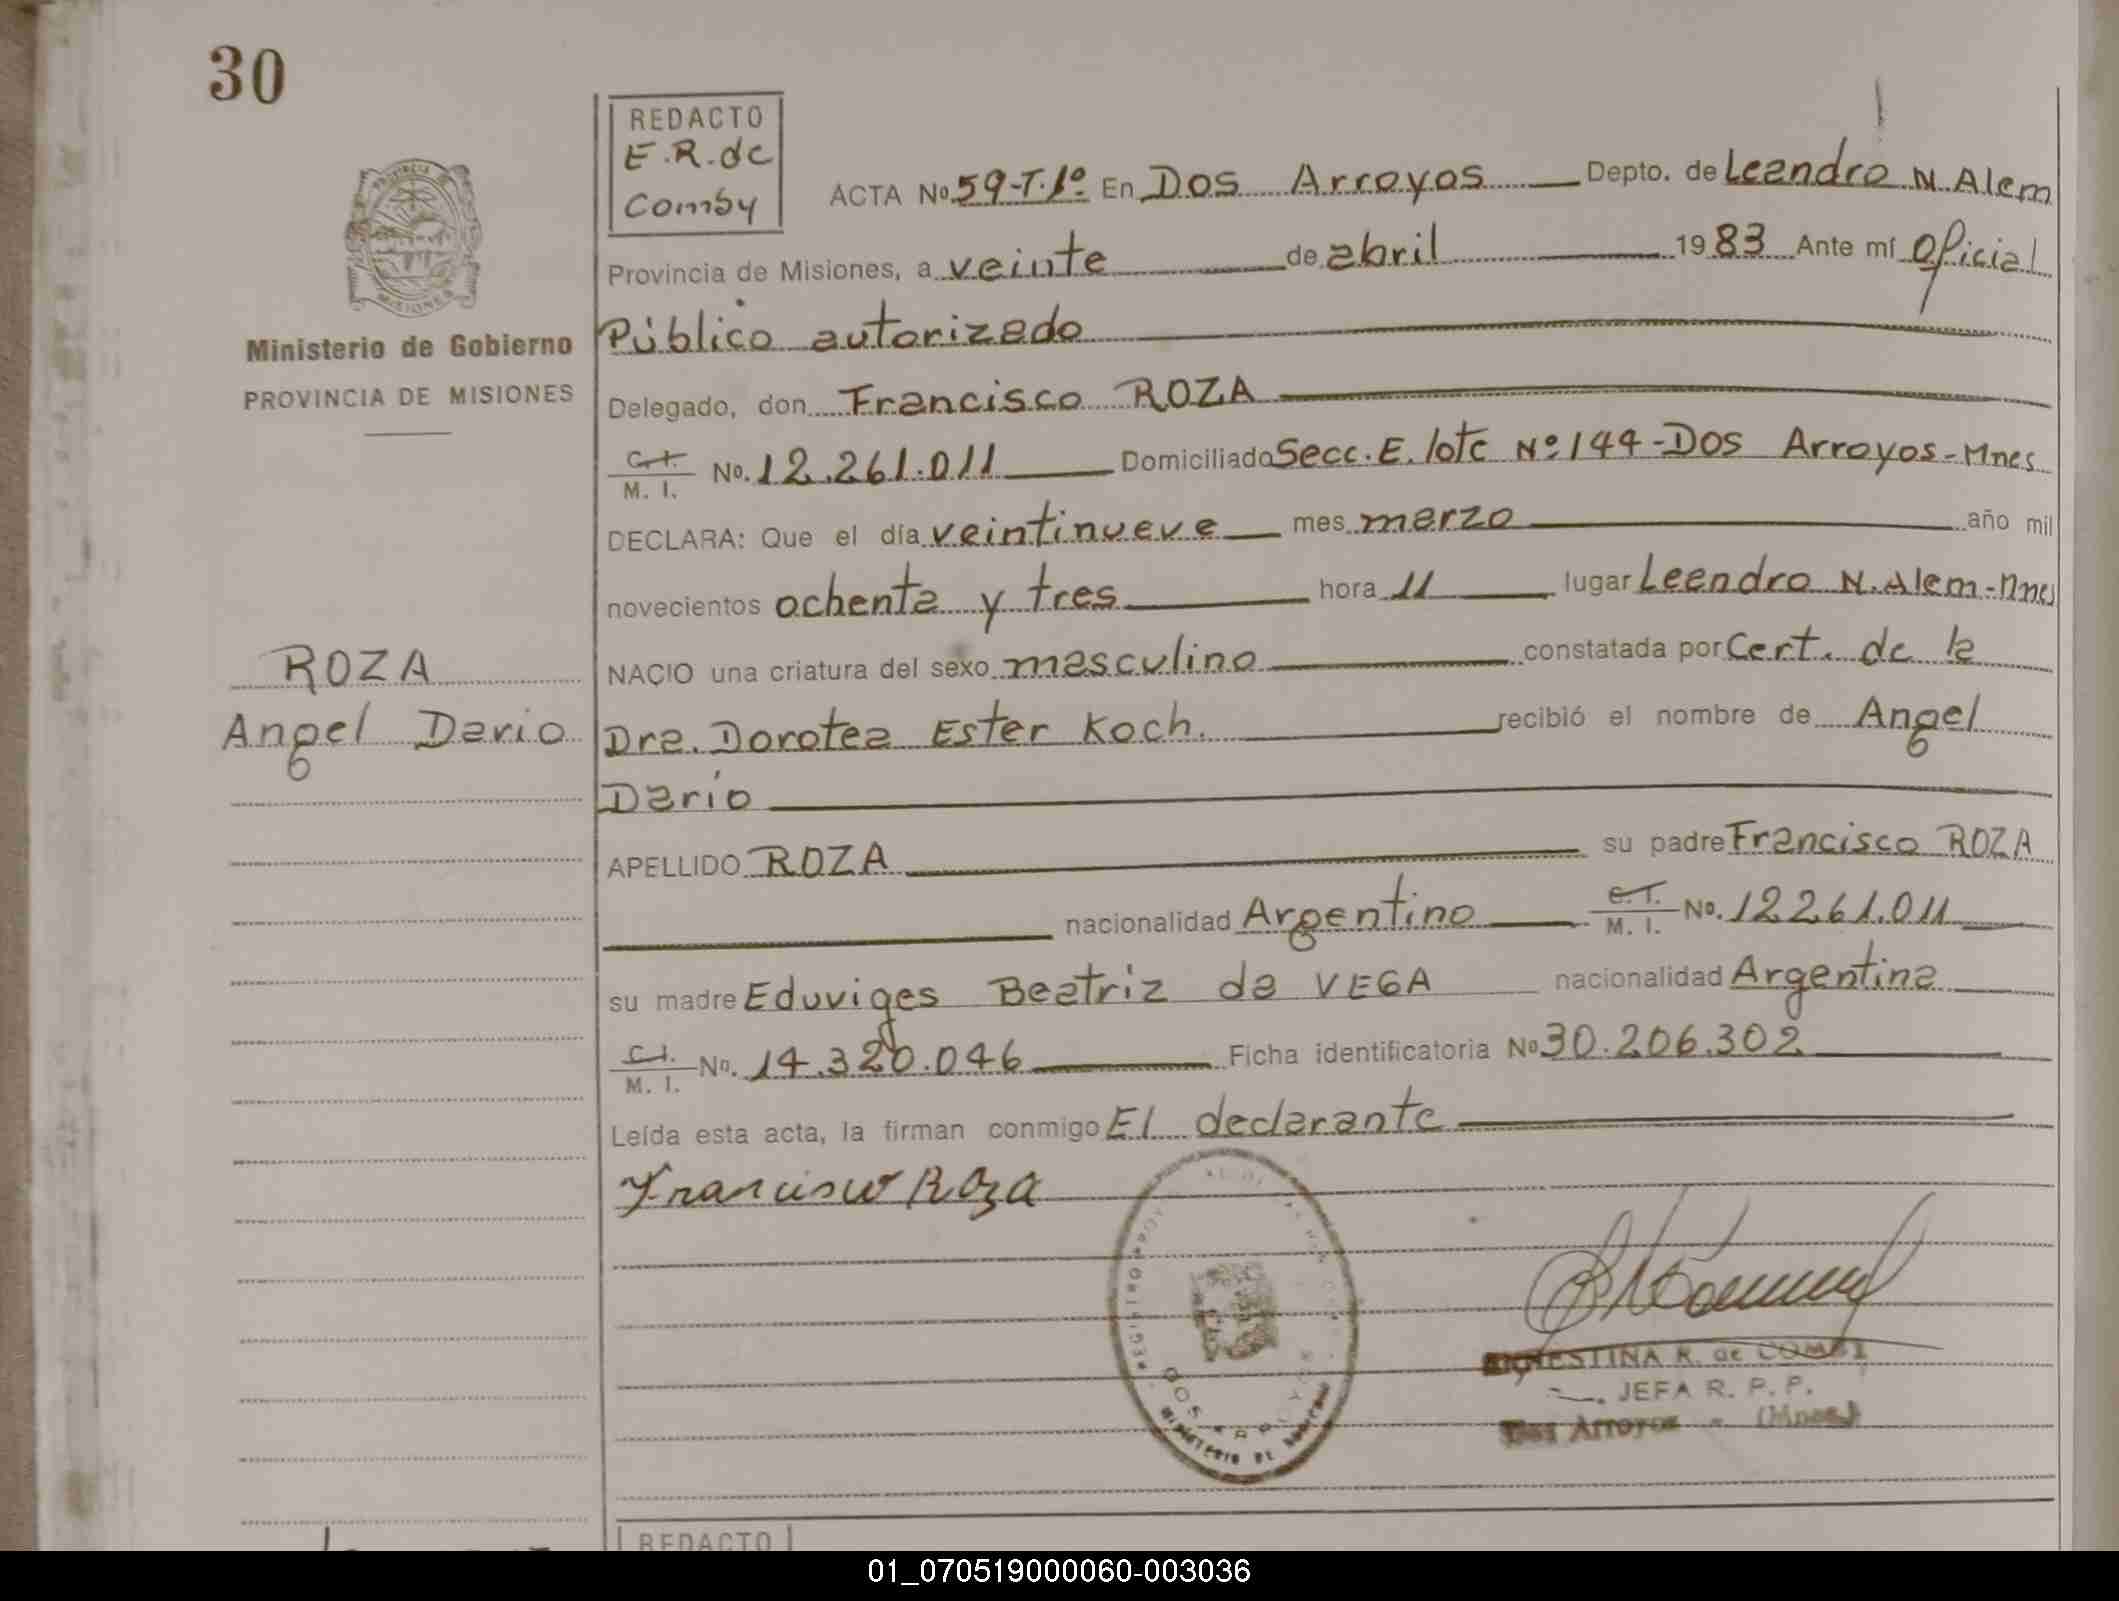 30
REDACTO
E.R.de
Comby
ACTA Nº 59-T.1º En Dos Arroyos Depto. de Leandro N. Alem
Provincia de Misiones, a veinte de abril 1983 Ante mí Oficial
Público autorizado
Ministerio de Gobierno
PROVINCIA DE MISIONES
Delegado, don Francisco ROZA
C.I.
M. I. No. 12.261.011 Domiciliado Secc. E. lote Nº 144-Dos Arroyos-Mnes
DECLARA: Que el día veintinueve mes marzo año mil
novecientos ochenta y tres hora 11 lugar Leandro N. Alem-Mnes
NACIO una criatura del sexo masculino constatada por Cert. de la
Dra. Dorotea Ester Koch. recibió el nombre de Angel
Darío
ROZA
Angel Dario
APELLIDO ROZA su padre Francisco ROZA
nacionalidad Argentino C.I.
M. I. No. 12261.011
su madre Eduviges Beatriz da VEGA nacionalidad Argentina
C.I.
M. I. No. 14.320.046 Ficha identificatoria Nº 30.206.302
Leída esta acta, la firman conmigo El declarante
Francisco Roza
ERNESTINA R. de COMBI
JEFA R. P. P.
Dos Arroyos - (Mnes.)
DOS ARROYOS
MINISTERIO DE GOBIERNO
REDACTO
01_070519000060-003036